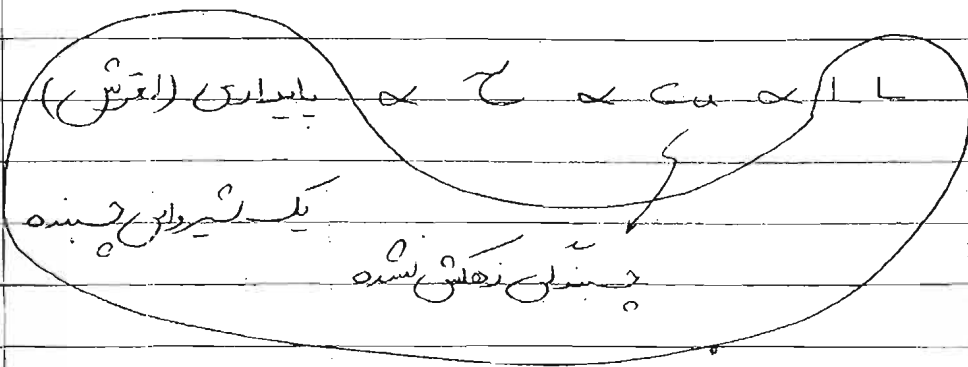 پایداری (لغزش) ∝ τ ∝ Cu ∝ LL
یک شیروانی چسبنده
چسبندگی زهکشی نشده